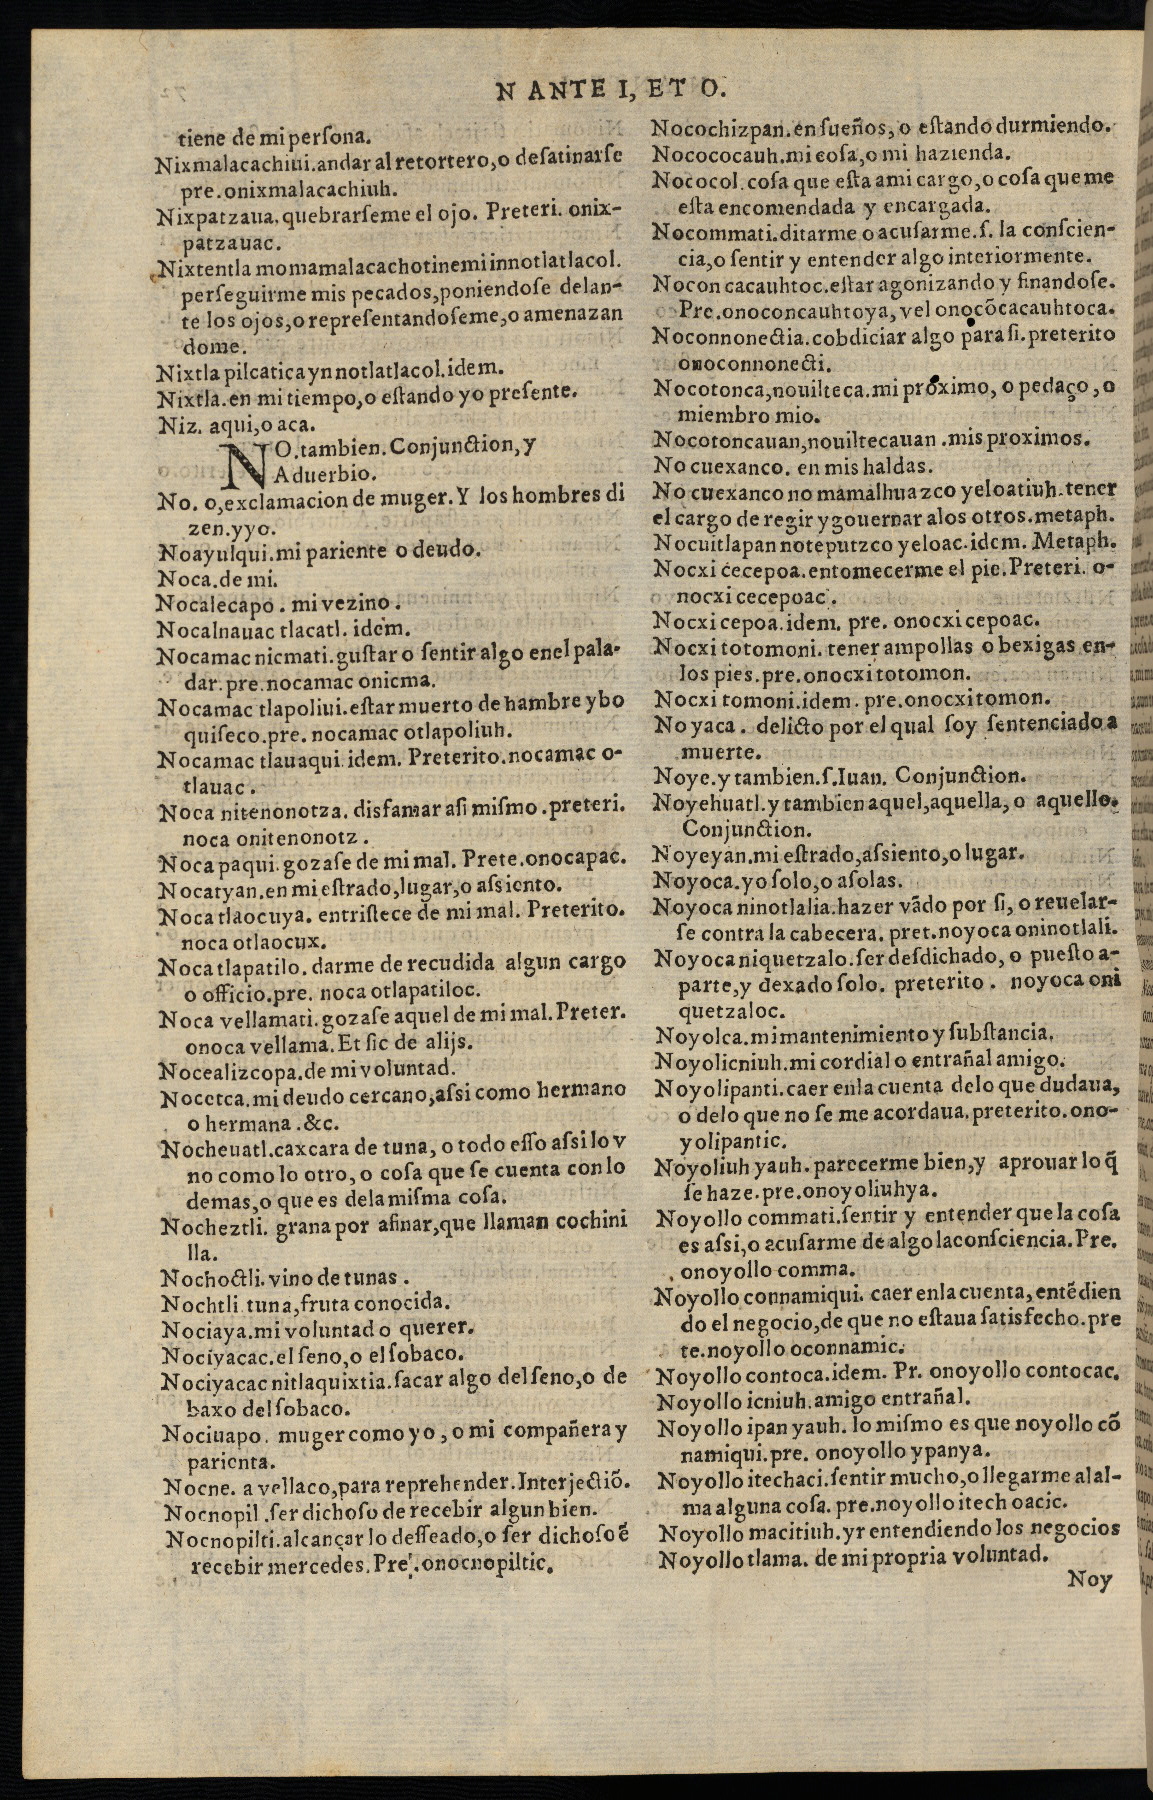 N ANTE I, ET O.
tiene de mi perſona.
Nixmalacachiui.andar al retortero,o deſatinarſe
pre.onixmalacachiuh.
Nixpatzaua.quebrarſeme el ojo. Preteri. onix-
patzauac.
Nixtentla momamalacachotinemi in notlatlacol.
perſeguirme mis pecados,poniendoſe delan-
te los ojos,o repreſentandoſeme,o amenazan
dome.
Nixtla pilcatica yn notlatlacol.idem.
Nixtla.en mi tiempo,o eſtando yo preſente.
Niz. aqui,o aca.
NO.tambien.Conjunction,y
Aduerbio.
No. o,exclamacion de muger. Y los hombres di
zen.yyo.
Noayulqui.mi pariente o deudo.
Noca.de mi.
Nocalecapo. mi vezino.
Nocalnauac tlacatl. idem.
Nocamac nicmati.guſtar o ſentir algo enel pala-
dar.pre.nocamac onicma.
Nocamac tlapoliui.eſtar muerto de hambre y bo
quiſeco.pre. nocamac otlapoliuh.
Nocamac tlauaqui.idem. Preterito.nocamac o-
tlauac.
Noca nitenonotza. disfamar aſi miſmo.preteri.
noca onitenonotz.
Noca paqui.gozaſe de mi mal. Prete.onocapac.
Nocatyan.en mi eſtrado,lugar,o aſsiento.
Noca tlaocuya. entriſtece de mi mal. Preterito.
noca otlaocux.
Noca tlapatilo. darme de recudida algun cargo
o officio.pre. noca otlapatiloc.
Noca vellamati.gozaſe aquel de mi mal. Preter.
onoca vellama.Et ſic de alijs.
Nocealizcopa.de mi voluntad.
Nocetca.mi deudo cercano,aſsi como hermano
o hermana.&c.
Nocheuatl.caxcara de tuna, o todo eſſo aſsi lo v
no como lo otro, o coſa que ſe cuenta con lo
demas,o que es dela miſma coſa.
Nocheztli. grana por afinar,que llaman cochini
lla.
Nochoctli.vino de tunas.
Nochtli.tuna,fruta conocida.
Nociaya.mi voluntad o querer.
Nociyacac.el ſeno,o el ſobaco.
Nociyacac nitlaquixtia.ſacar algo del ſeno,o de
baxo del ſobaco.
Nociuapo. muger como yo, o mi compañera y
parienta.
Nocne. a vellaco,para reprehender.Interjectiõ.
Nocnopil.ſer dichoſo de recebir algun bien.
Nocnopilti.alcançar lo deſſeado,o ſer dichoſo ẽ
recebir mercedes. Pre.onocnopiltic.
Nocochizpan.en ſueños, o eſtando durmiendo.
Nocococauh.mi coſa,o mi hazienda.
Nococol.coſa que eſta a mi cargo,o coſa que me
eſta encomendada y encargada.
Nocommati.ditarme o acuſarme.ſ. la conſcien-
cia,o ſentir y entender algo interiormente.
Nocon cacauhtoc.eſtar agonizando y finandoſe.
Pre.onoconcauhtoya, vel onocõcacauhtoca.
Noconnonectia.cobdiciar algo para ſi.preterito
onoconnonecti.
Nocotonca,nouilteca.mi proximo, o pedaço, o
miembro mio.
Nocotoncauan,nouiltecauan.mis proximos.
No cuexanco. en mis haldas.
No cuexanco no mamalhuazco yeloatiuh.tener
el cargo de regir y gouernar alos otros.metaph.
Nocuitlapan noteputzco yeloac.idem. Metaph.
Nocxi cecepoa.entomecerme el pie.Preteri. o-
nocxi cecepoac.
Nocxi cepoa.idem. pre. onocxi cepoac.
Nocxi totomoni. tener ampollas o bexigas en-
los pies.pre.onocxi totomon.
Nocxi tomoni.idem. pre.onocxi tomon.
No yaca. delicto por el qual ſoy ſentenciado a
muerte.
Noye.y tambien.ſ.Iuan. Conjunction.
Noyehuatl.y tambien aquel,aquella,o aquello.
Conjunction.
Noyeyan.mi eſtrado,aſsiento,o lugar.
Noyoca.yo ſolo,o aſolas.
Noyoca ninotlalia.hazer vãdo por ſi, o reuelar-
ſe contra la cabecera. pret.noyoca oninotlali.
Noyoca niquetzalo.ſer deſdichado, o pueſto a-
parte,y dexado ſolo. preterito. noyoca oni
quetzaloc.
Noyolca.mi mantenimiento y ſubſtancia.
Noyolicniuh.mi cordial o entrañal amigo.
Noyolipanti.caer enla cuenta delo que dudaua,
o delo que no ſe me acordaua.preterito.ono-
yolipantic.
Noyoliuh yauh. parecerme bien,y aprouar lo q̃
ſe haze.pre.onoyoliuhya.
Noyollo commati.ſentir y entender que la coſa
es aſsi,o acuſarme de algo laconſciencia.Pre.
onoyollo comma.
Noyollo connamiqui. caer enla cuenta, entẽdien
do el negocio,de que no eſtaua ſatisfecho.pre
te.noyollo oconnamic.
Noyollo contoca.idem. Pr. onoyollo contocac.
Noyollo icniuh.amigo entrañal.
Noyollo ipan yauh. lo miſmo es que noyollo cõ
namiqui.pre. onoyollo ypanya.
Noyollo itechaci.ſentir mucho,o llegarme al al-
ma alguna coſa. pre.noyollo itech oacic.
Noyollo macitiuh.yr entendiendo los negocios
Noyollo tlama. de mi propria voluntad.
Noy